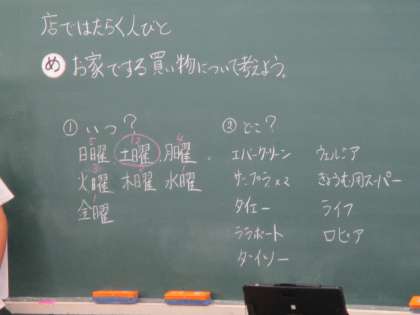 店ではたらく人びと
め お家でする買い物について考えよう。
① いつ?
5 12 4
日曜 土曜 月曜
火曜 木曜 水曜
金曜
② どこ?
エバーグリーン ヴェルニア
サンプラ×2 ぎょうむ用スーパー
ダイエー ライフ
ララポート ロピア
ダイソー